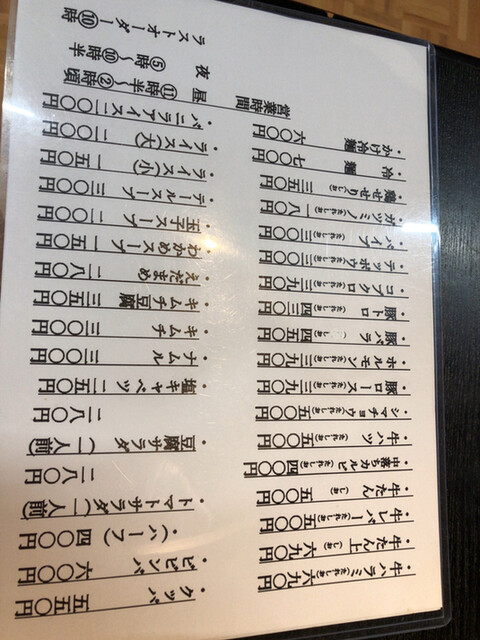 ・牛ハラミ(たれ・しお)六九〇円
・牛たん上(しお)六九〇円
・牛レバー(たれ・しお)五五〇円
・牛たん(しお)五〇〇円
・中落ちカルビ(たれ・しお)四〇〇円
・牛ハツ(たれ・しお)五〇〇円
・シマチョウ(たれ・しお)五〇〇円
・豚ロース(たれ・しお)三九〇円
・ホルモン(たれ・しお)三九〇円
・豚バラ(たれ・しお)四五〇円
・豚トロ(たれ・しお)四三〇円
・コブクロ(たれ・しお)三九〇円
・テッポウ(たれ・しお)三〇〇円
・パイプ(たれ・しお)三〇〇円
・ガツミミ(たれ・しお)一八〇円
・鶏せせり(たれ・しお)三五〇円
・冷麺 七〇〇円
・かけ冷麺 六〇〇円
・クッパ 五五〇円
・ビビンバ 六〇〇円
(ハーフ)四〇〇円
・トマトサラダ(一人前)
二八〇円
・豆腐サラダ(一人前)
二八〇円
・塩キャベツ二五〇円
・ナムル 三〇〇円
・キムチ 三〇〇円
・キムチ豆腐三五〇円
・えだまめ 二八〇円
・わかめスープ一五〇円
・玉子スープ二〇〇円
・テールスープ三〇〇円
・ライス(小)一五〇円
・ライス(大)二〇〇円
・バニラアイス二〇〇円
営業時間
昼 ⑪時半〜②時頃
夜 ⑤時〜⑩時半
ラストオーダー⑩時